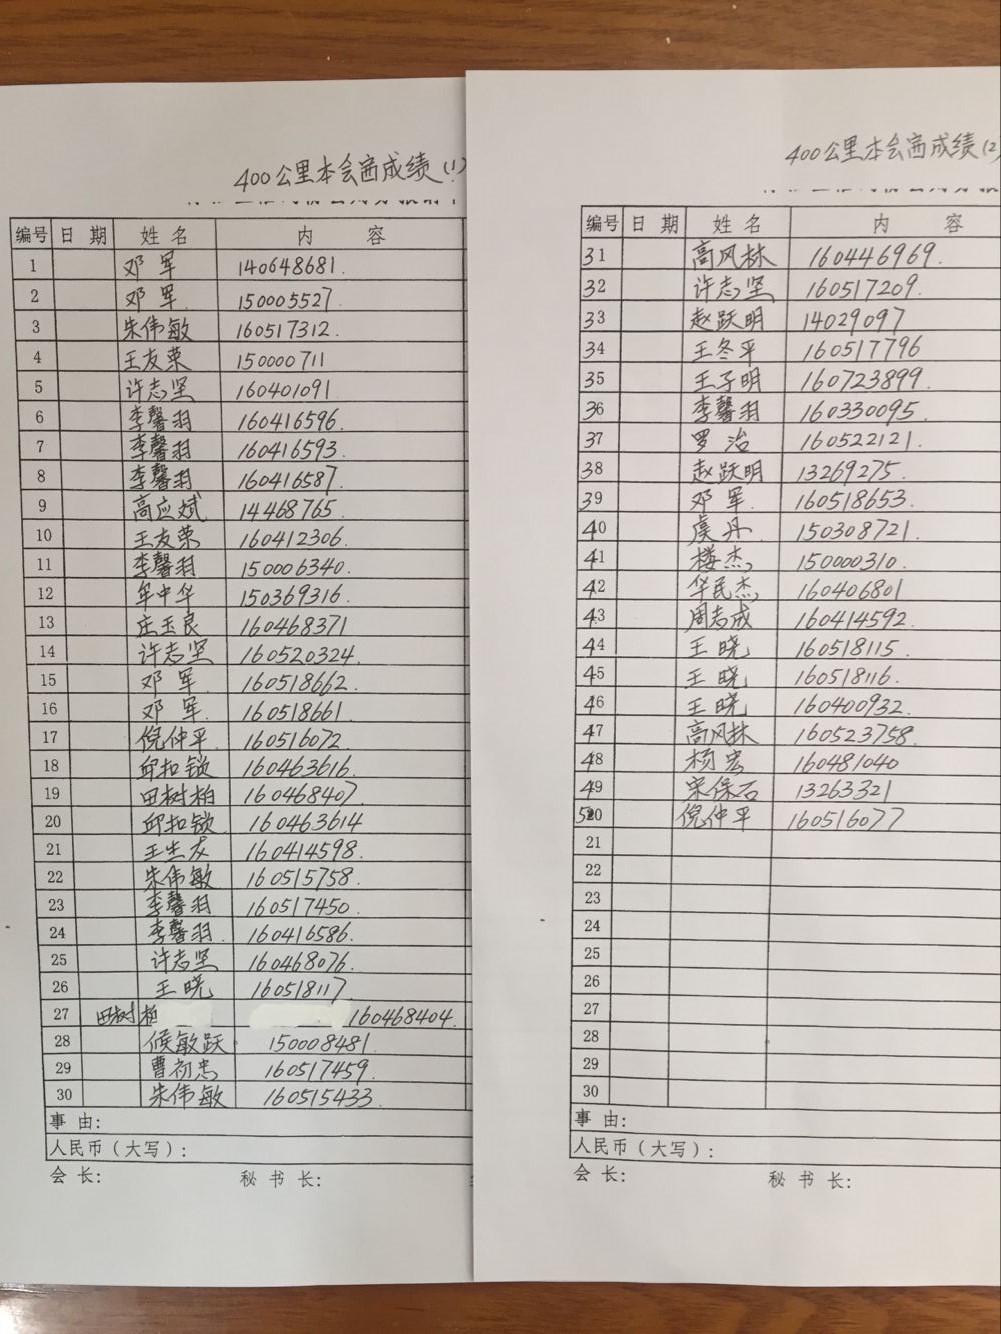 400公里本会赛成绩(1)
编号 日 期 姓 名 内 容
1 邓 军 140648681.
2 邓 军 150005527
3 朱伟敏 160517312.
4 王友荣 150000711
5 许志坚 160401091
6 李馨羽 160416596.
7 李馨羽 160416593.
8 李馨羽 160416587.
9 高应斌 14468765.
10 王友荣 160412306.
11 李馨羽 150006340.
12 牟中华 150369316.
13 庄玉良 160468371
14 许志坚 160520324.
15 邓 军. 160518662.
16 邓 军. 160518661
17 倪仲平 160516072.
18 邱扣锁 160463616.
19 田树柏 160468407.
20 邱扣锁 160463614
21 王生友 160414598.
22 朱伟敏 160515758.
23 李馨羽 160517450.
24 李馨羽. 160416586.
25 许志坚 160468076.
26 王 晓 160518117.
27 田树柏 160468404.
28 候敏跃 150008481.
29 曹初忠 160517459.
30 朱伟敏 160515433.
事 由:
人民币(大写):
会 长: 秘 书 长:
400公里本会赛成绩(2)
编号 日 期 姓 名 内 容
31 高风林 160446969.
32 许志坚 160517209.
33 赵跃明 14029097
34 王冬平 160517796
35 王子明 160723899.
36 李馨羽 160330095.
37 罗 治 160522121.
38 赵跃明 13269275.
39 邓 军. 160518653.
40 虞 丹. 150308721.
41 楼杰 150000310.
42 华民杰 160406801
43 周志成 160414592.
44 王 晓 160518115.
45 王 晓 160518116.
46 王 晓 160400932.
47 高风林 160523758.
48 杨 宏 160481040
49 宋保石 13263321
50 倪仲平 160516077
21
22
23
24
25
26
27
28
29
30
事 由:
人民币(大写):
会 长: 秘 书 长: